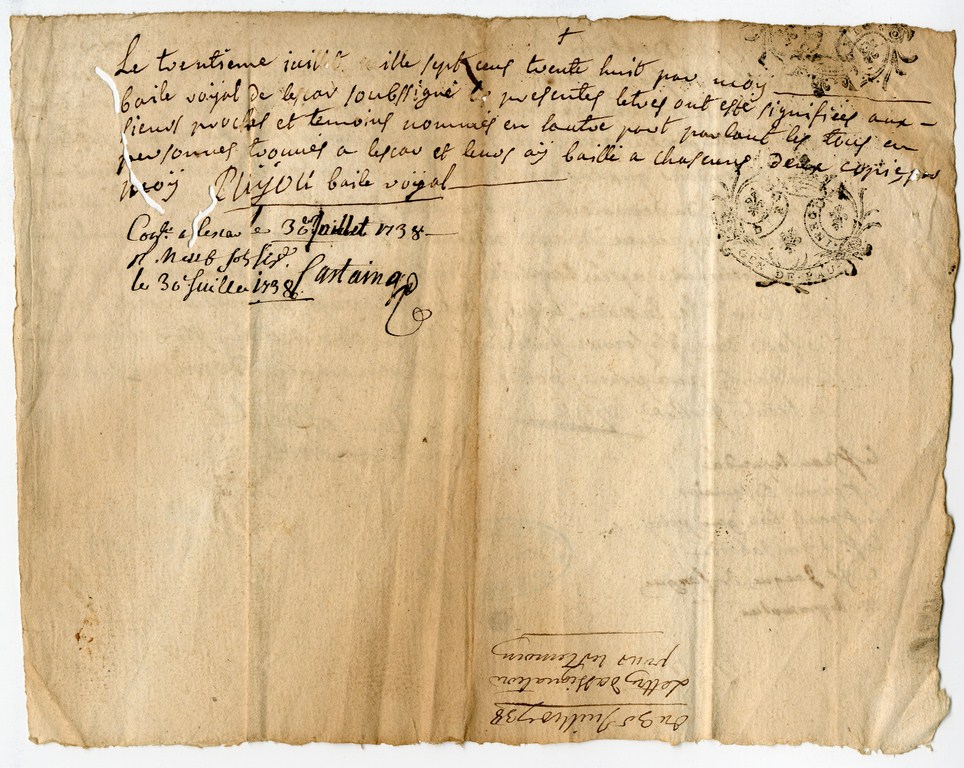 Le trentieme juillet mille sept cens trente huit par moy
baile royal de lescar soubsigné les presentes letres ont esté signifiées aux
sieurs procés et temoins nommés en lautre part parlant les tous en
personnes trouvés a lescar et leurs ay baillé a chascuns deux copies par
moy Pujou baile royal
Con.le a lescar le 30e Juillet 1738
le 30e Juillet 1738 Castaing
GEN DE PAU
du 30 Juillet 1738
Lettres dassignation
pour les temoins